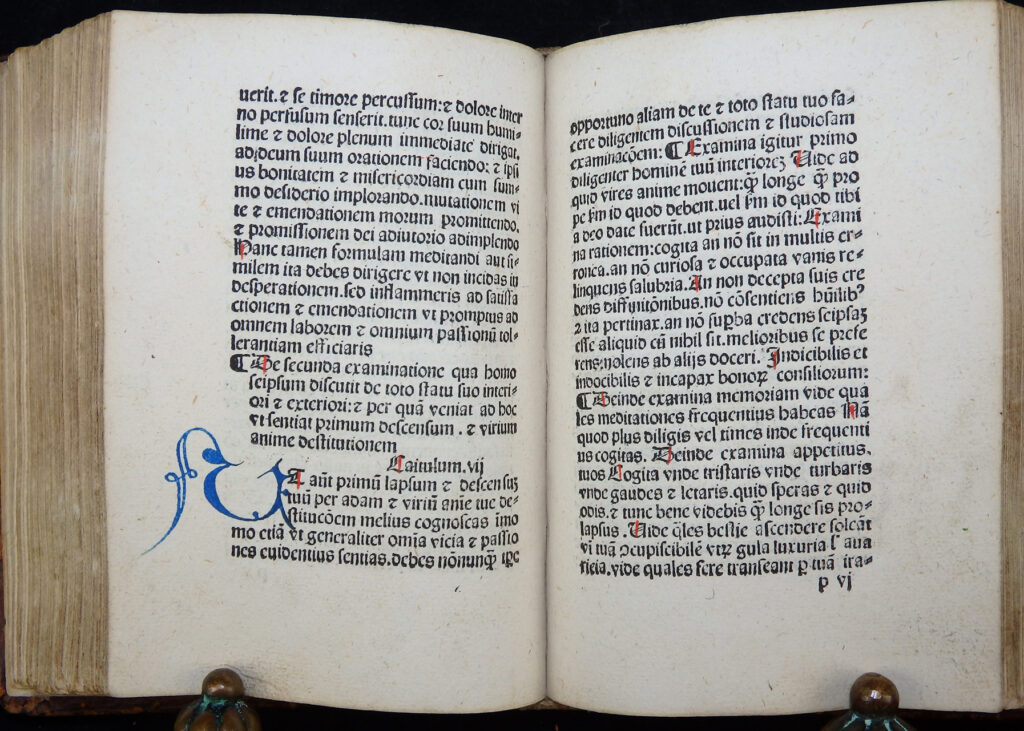 uerit. ⁊ se timore percussum: ⁊ dolore inter
no perfusum senserit. tunc cor suum humi-
lime ⁊ dolore plenum immediate dirigat.
ad deum suum orationem faciendo: ⁊ ipsi
us bonitatem ⁊ misericordiam cum sum-
mo desiderio implorando. mutationem vi
te ⁊ emendationem morum promittendo.
⁊ promissionem dei adiutorio adimplendo
Hanc tamen formulam meditandi aut si-
milem ita debes dirigere vt non incidas in
desperationem. sed inflammeris ad satisfa
ctionem ⁊ emendationem vt promptus ad
omnem laborem ⁊ omnium passionū tol-
lerantiam efficiaris
¶ De secunda examinatione qua homo
seipsum discutit de toto statu suo interi-
ori ⁊ exteriori: ⁊ per quā veniat ad hoc
vt sentiat primum descensum. ⁊ virium
anime destitutionem
Caitulum. vij
UT aūt primū lapsum ⁊ descensuꝫ
tuū per adam ⁊ viriū anīe tue de-
stitucōem melius cognoscas īmo
mo etiā vt generaliter omīa vicia ⁊ passio
nes euidentius sentias. debes nōnunqꝫ tꝑe
opportuno aliam de te ⁊ toto statu tuo fa-
cere diligentem discussionem ⁊ studiosam
examinacōem: ¶ Examina igitur primo
diligenter hominē tuū interioreꝫ Uide ad
quid vires anime mouent: qꝫ longe qꝫ pro
pe km̄ id quod debent. uel km̄ id quod tibi
a deo date fuerūt. ut prius audisti: Exami
na rationem: cogita an nō sit in multis er-
ronea. an nō curiosa ⁊ occupata vanis re-
linquens salubria. An non decepta suis cre
dens diffinitōnibus. nō cōsentiens hūilibꝰ
⁊ ita pertinax. an nō supꝑba credens seipsaꝫ
esse aliquid cū nihil sit. melioribus se prefe
rens: nolens ab alijs doceri. Indicibilis et
indocibilis ⁊ incapax bonoꝝ consiliorum:
¶ Deinde examina memoriam vide qua
les meditationes frequentius habeas Nā
quod plus diligis vel times inde frequenti
us cogitas. Deinde examina appetitus.
tuos Cogita vnde tristaris vnde turbaris
vnde gaudes ⁊ letaris. quid speras ⁊ quid
odis. ⁊ tunc bene videbis qꝫ longe sis pro-
lapsus. Uide qles bestie ascendere soleāt
vi tuā ↄcupiscibilē vtꝝ gula luxuria l aua
ricia. vide quales fere transeant ꝑ tuā ira-
p vj